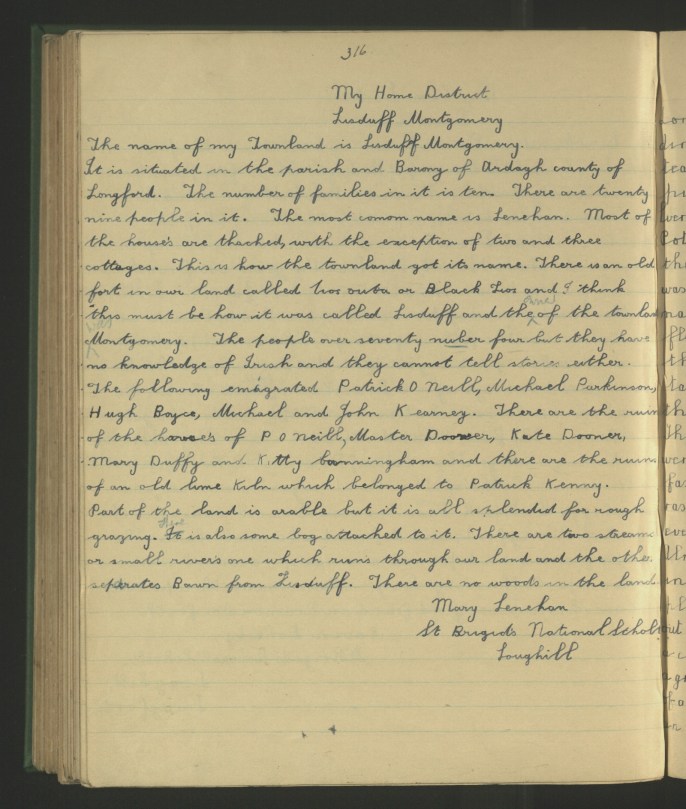 316
My Home District
Lisduff Montgomery
The name of my Townland is Lisduff Montgomery.
It is situated in the parish and Barony of Ardagh county of
Longford. The number of families in it is ten. There are twenty
nine people in it. The most comom name is Lenehan. Most of
the houses are thached, with the exception of two and three
cottages. This is how the townland got its name. There is an old
fort in our land called lios or Black Lios and I think
this must be how it was called Lisduff and the owner of the townland
was Montgomery. The people over seventy nuber four but they have
no knowledge of Irish and they cannot tell stories either.
The following emigrated Patrick O Neill, Michael Parkinson,
Hugh Boyce, Michael and John Kearney. There are the ruins
of the houses of P O Neill, Master Dooner, Kate Dooner,
Mary Duffy and Kitty bunningham and there are the ruins
of an old lime Kiln which belonged to Patrick Kenny.
Part of the land is arable but it is all splendid for rough
grazing. There is also some bog attached to it. There are two streams
or small rivers one which runs through our land and the other
seperates Bawn from Lisduff. There are no woods in the land
Mary Lenehan
St Brigids National School
Loughill